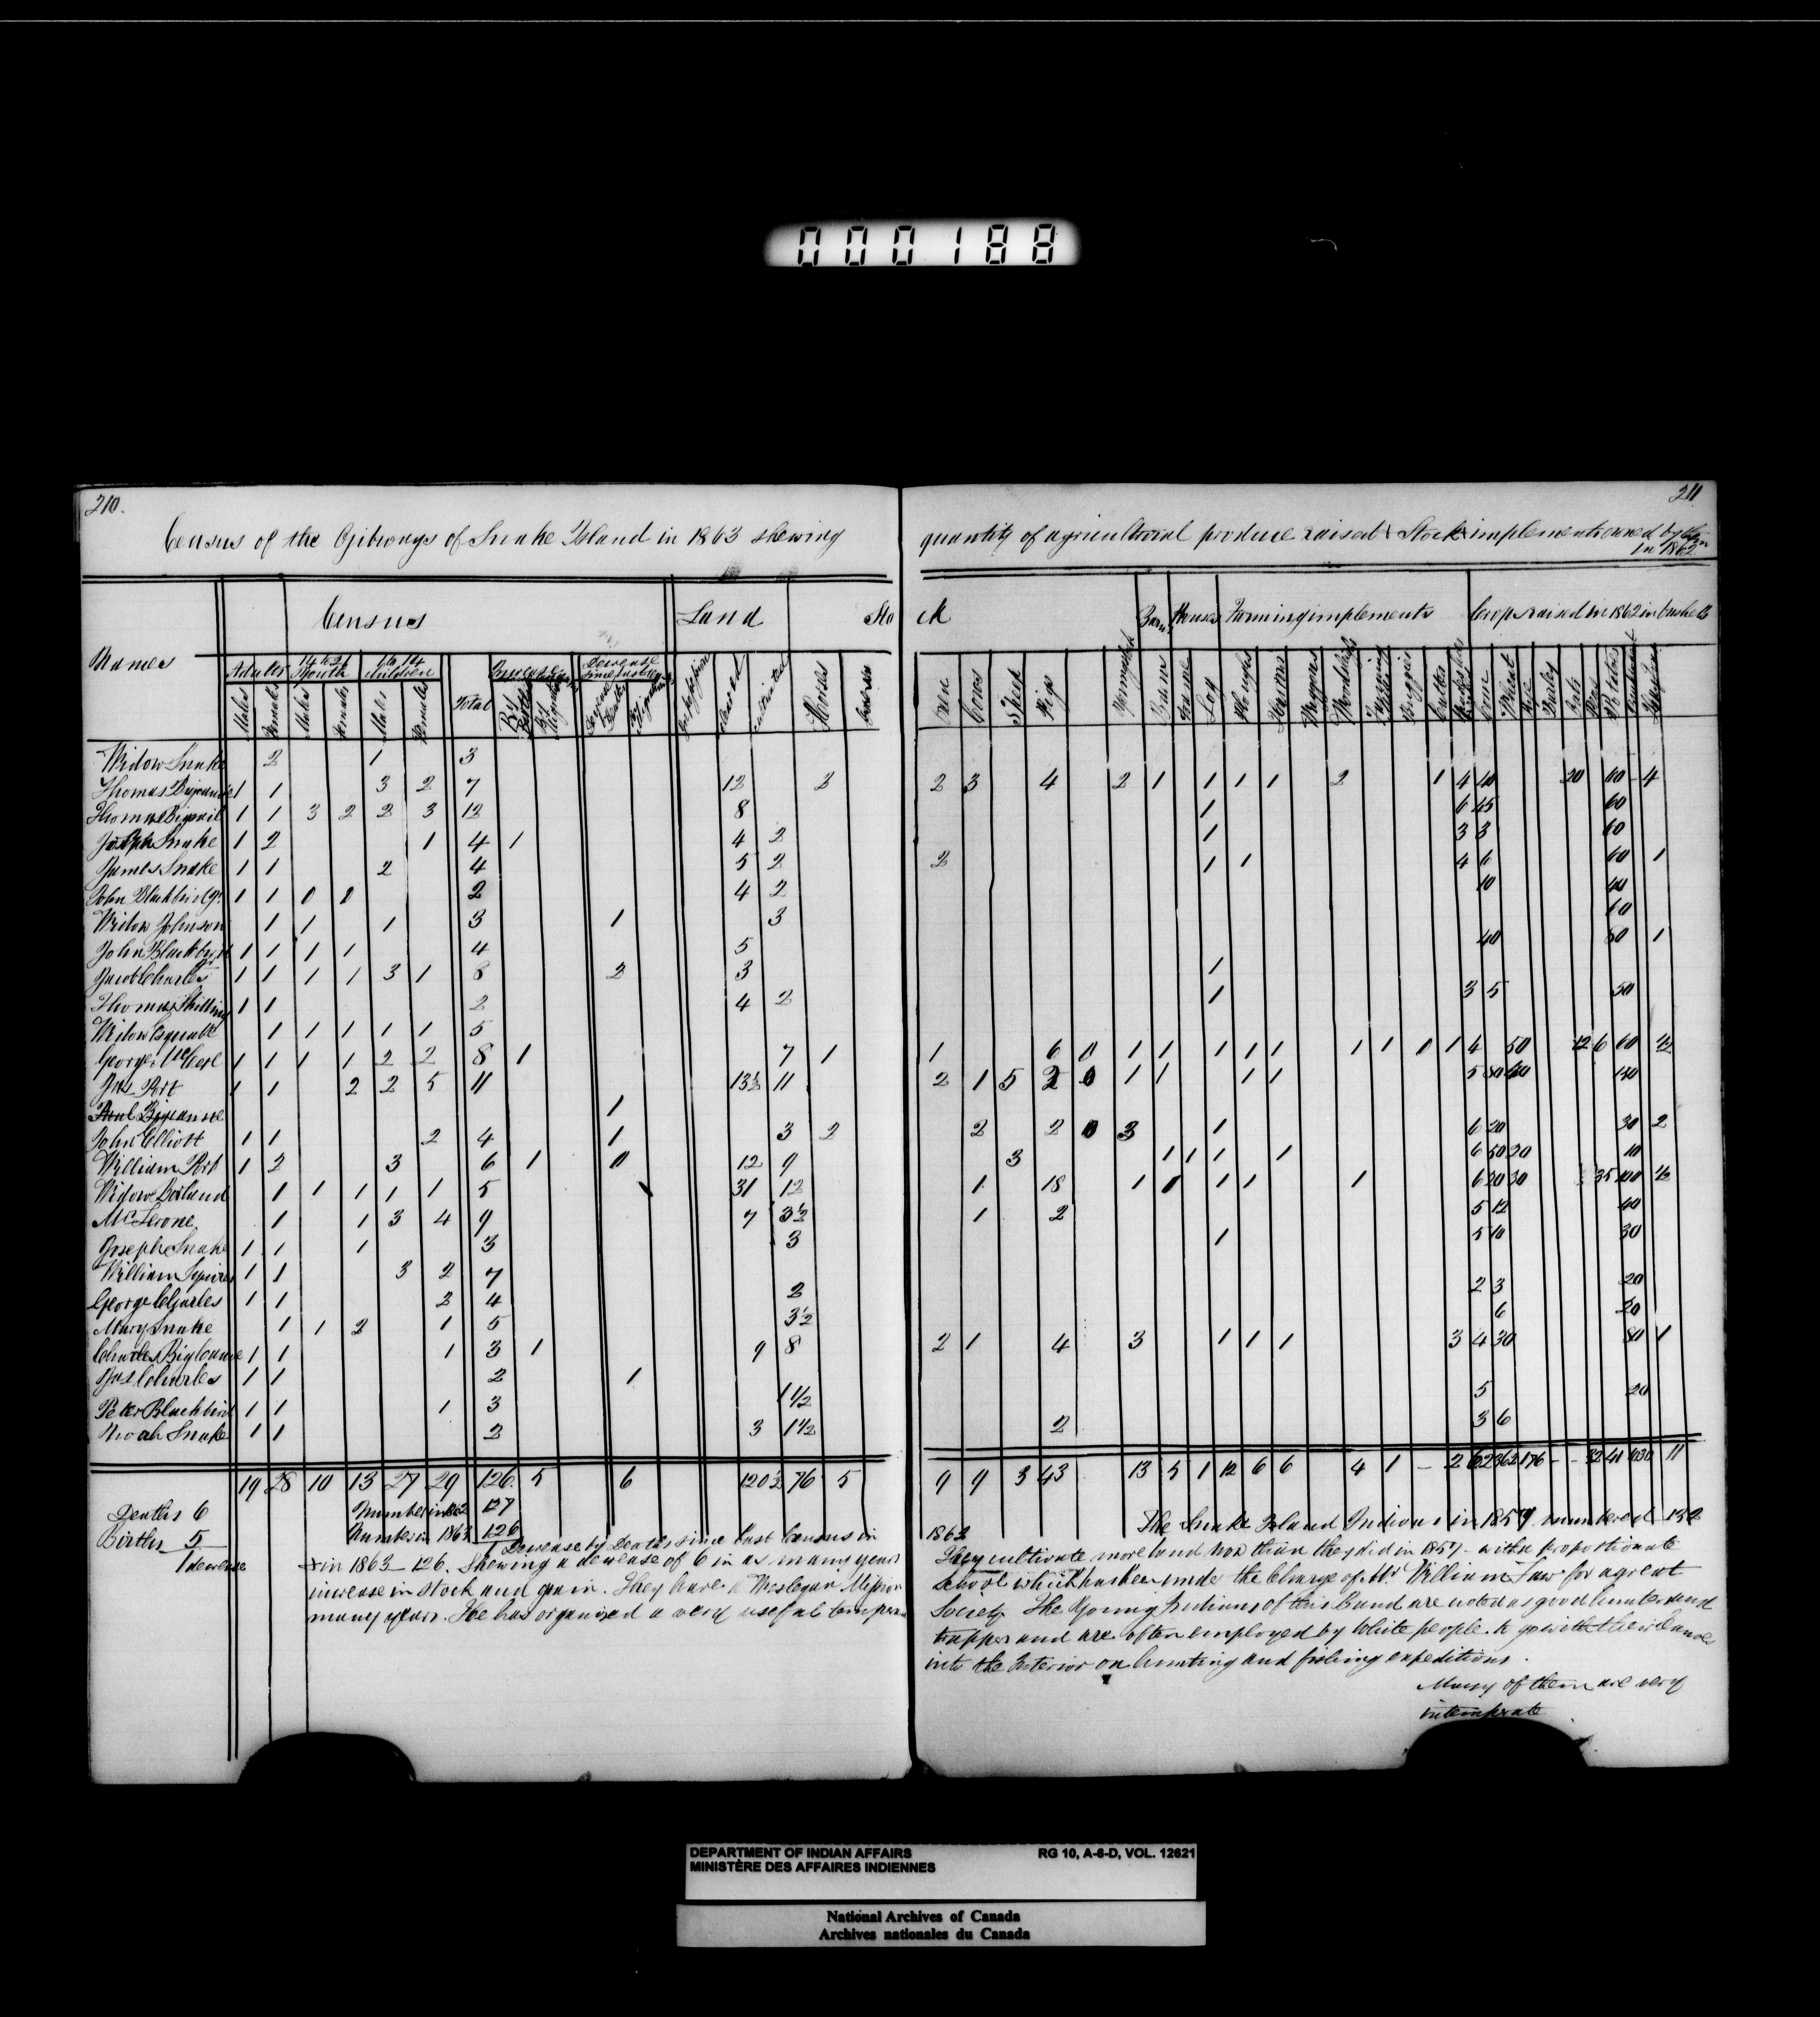 000188
210.
211
Census of the Ojibways of Snake Island in 1863 shewing
quantity of agricultural produce raised & Stock & implements owned by them
in 1862
Names
Census
Land
Sto
ck
Barns
Houses
Farming implements
Crops raised in 1862 in bushels
Adults
14 to 21 Youth
Children
Increase
Decrease
Males
Females
Males
Females
Males
Females
Total
By Births
By Migration
Cleared
Cultivated
Horses
Oxen
Cows
Sheep
Pigs
Barn
Frame
Log
Ploughs
Harrows
Waggons
Fanning
Corn
Wheat
Barley
Oats
Peas
Potatoes
Widow Snake 2 1 3
Thomas Bigcanoe 1 1 3 2 7 12 2 2 3 4 2 1 1 1 1 2 1 4 40 20 60 4
Thomas Bigsail 1 1 3 2 2 3 12 8 1 6 45 60
Joseph Snake 1 2 1 4 1 4 2 1 3 3 60
James Snake 1 1 2 4 5 2 2 1 1 4 6 60 1
John Blackbird Jr. 1 1 0 0 2 4 2 10 40
Widow Johnson 1 1 1 3 1 3 60
John Blackbird 1 1 1 1 4 5 40 80 1
Jacob Charles 1 1 1 1 3 1 8 2 3 1
Thomas Shilling 1 1 2 4 2 1 3 5 50
Widow 1 1 1 1 1 5
George McCue 1 1 1 1 2 2 8 1 7 1 1 6 0 1 1 1 1 1 1 1 0 1 4 50 12 6 60 1/2
Jas Port 1 1 2 2 5 11 13½ 11 2 1 5 2 0 1 1 1 1 5 80 60
Paul Bigcanoe 1
John Elliott 1 1 2 4 1 3 2 2 2 0 3 1 6 20 30 2
William Port 1 2 3 6 1 0 12 9 3 1 1 1 1 6 50 20 10
Widow Borland 1 1 1 1 1 5 31 12 1 18 1 0 1 1 1 6 20 30 35 100 1/2
1 1 3 4 9 7 3½ 1 2 5 12 40
Joseph Snake 1 1 1 3 3 1 5 10 30
William Squires 1 1 3 2 7
George Charles 1 1 2 4 2 2 3 20
Mary Snake 1 1 2 1 5 3½ 6 20
Charles Big Canoe 1 1 1 3 1 9 8 2 1 4 3 1 1 1 3 4 30 80 1
Jas Charles 1 1 2 1
Peter Blackbird 1 1 1 3 1½ 5 20
Noah Snake 1 1 2 3 1½ 2 3 6
19 28 10 13 27 29 126 5 6 120½ 76 5 9 9 3 43 13 5 1 12 6 6 4 1 - 2 62 362 176 - - 32 41 1030 11
Deaths 6
Births 5
1 decrease
Number in 1862 127
Number in 1863 126
1 Decrease by Deaths since last Census in
1862
The Snake Island Indians in 1857 numbered 132
& in 1863 – 126. Shewing a decrease of 6 in as many years
They cultivate more land now than they did in 1857 – with a proportionate
increase in stock and grain. They have a Wesleyan Mission
School which has been under the Charge of Mr. William Law for a great
many years. He has organized a very useful temperance
Society. The Young Indians of this Band are noted as good hunters and
trappers and are often employed by White people to go with their Canoes
into the Interior on hunting and fishing expeditions.
Many of them are very
intemperate
DEPARTMENT OF INDIAN AFFAIRS RG 10, A-6-D, VOL. 12621
MINISTÈRE DES AFFAIRES INDIENNES
National Archives of Canada
Archives nationales du Canada